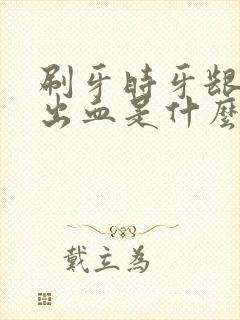 刷牙時牙龈
出血是什麼
戴立為